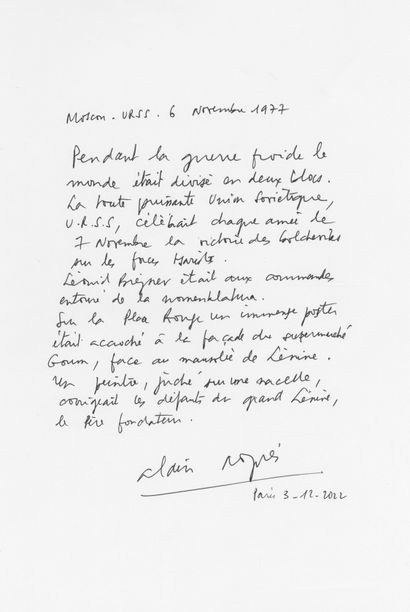 Moscou. URSS. 6 Novembre 1977
Pendant la guerre froide le
monde était divisé en deux blocs.
La toute puissante Union Soviétique,
U.R.S.S, célébrait chaque année le
7 Novembre la victoire des bolcheviks
sur les forces
Léonid Brejnev était aux commandes
entouré de la nomenklatura.
Sur la Place Rouge un immense poster
était accroché à la façade du supermarché
Goum, face au mausolée de Lénine.
Un peintre, juché sur une nacelle,
corrigeait les défauts du grand Lénine,
le Père fondateur.
Alain Noguès
Paris 3-12-2022